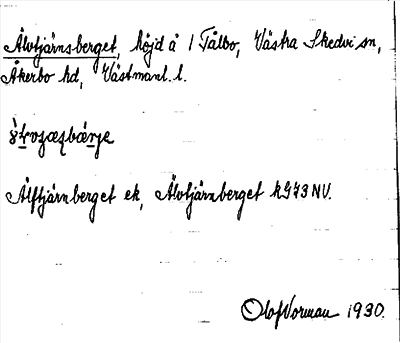 Älvtjärnsberget, höjd å 1 Tålbo, Västra Skedvi sn,
Åkerbo hd, Västmanl. l.
Älftjärnberget ek, Älvtjärnberget kg73NV.
Olof Norman 1930.